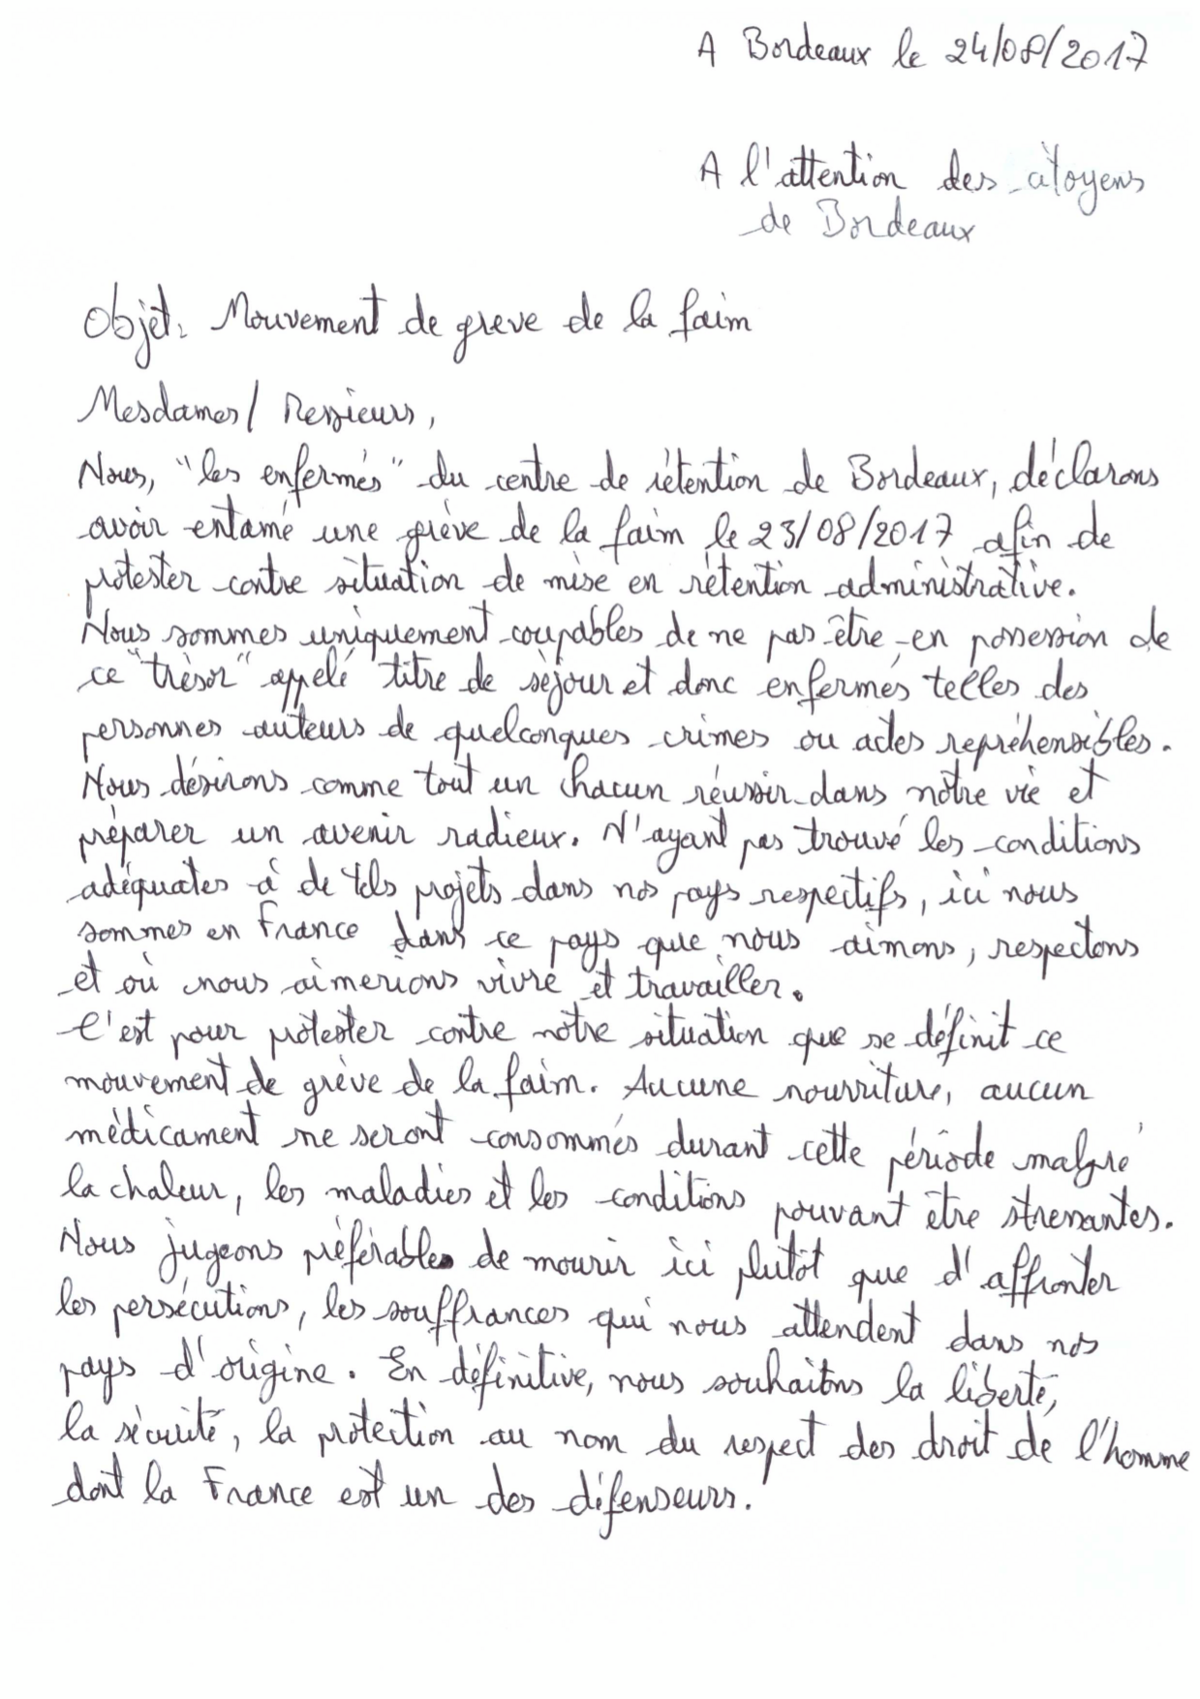 A Bordeaux le 24/08/2017
A l'attention des citoyens
de Bordeaux
Objet: Mouvement de greve de la faim
Mesdames/ Messieurs,
Nous, "les enfermés" du centre de rétention de Bordeaux, déclarons
avoir entamé une grève de la faim le 23/08/2017 afin de
protester contre situation de mise en rétention administrative.
Nous sommes uniquement coupables de ne pas être en possession de
ce "trèsor" appelé titre de séjour et donc enfermés telles des
personnes auteurs de quelconques crimes ou actes repréhensibles.
Nous désirons comme tout un chacun réussir dans notre vie et
préparer un avenir radieux. N'ayant pas trouvé les conditions
adéquates à de tels projets dans nos pays respectifs, ici nous
sommes en France dans ce pays que nous aimons, respectons
et où nous aimerions vivre et travailler.
C'est pour protester contre notre situation que se définit ce
mouvement de grève de la faim. Aucune nourriture, aucun
médicament ne seront consommés durant cette période malgré
la chaleur, les maladies et les conditions pouvant être stressantes.
Nous jugeons préférables de mourir ici plutôt que d'affronter
les persécutions, les souffrances qui nous attendent dans nos
pays d'origine. En définitive, nous souhaitons la liberté,
la sécurité, la protection au nom du respect des droit de l'homme
dont la France est un des défenseurs.